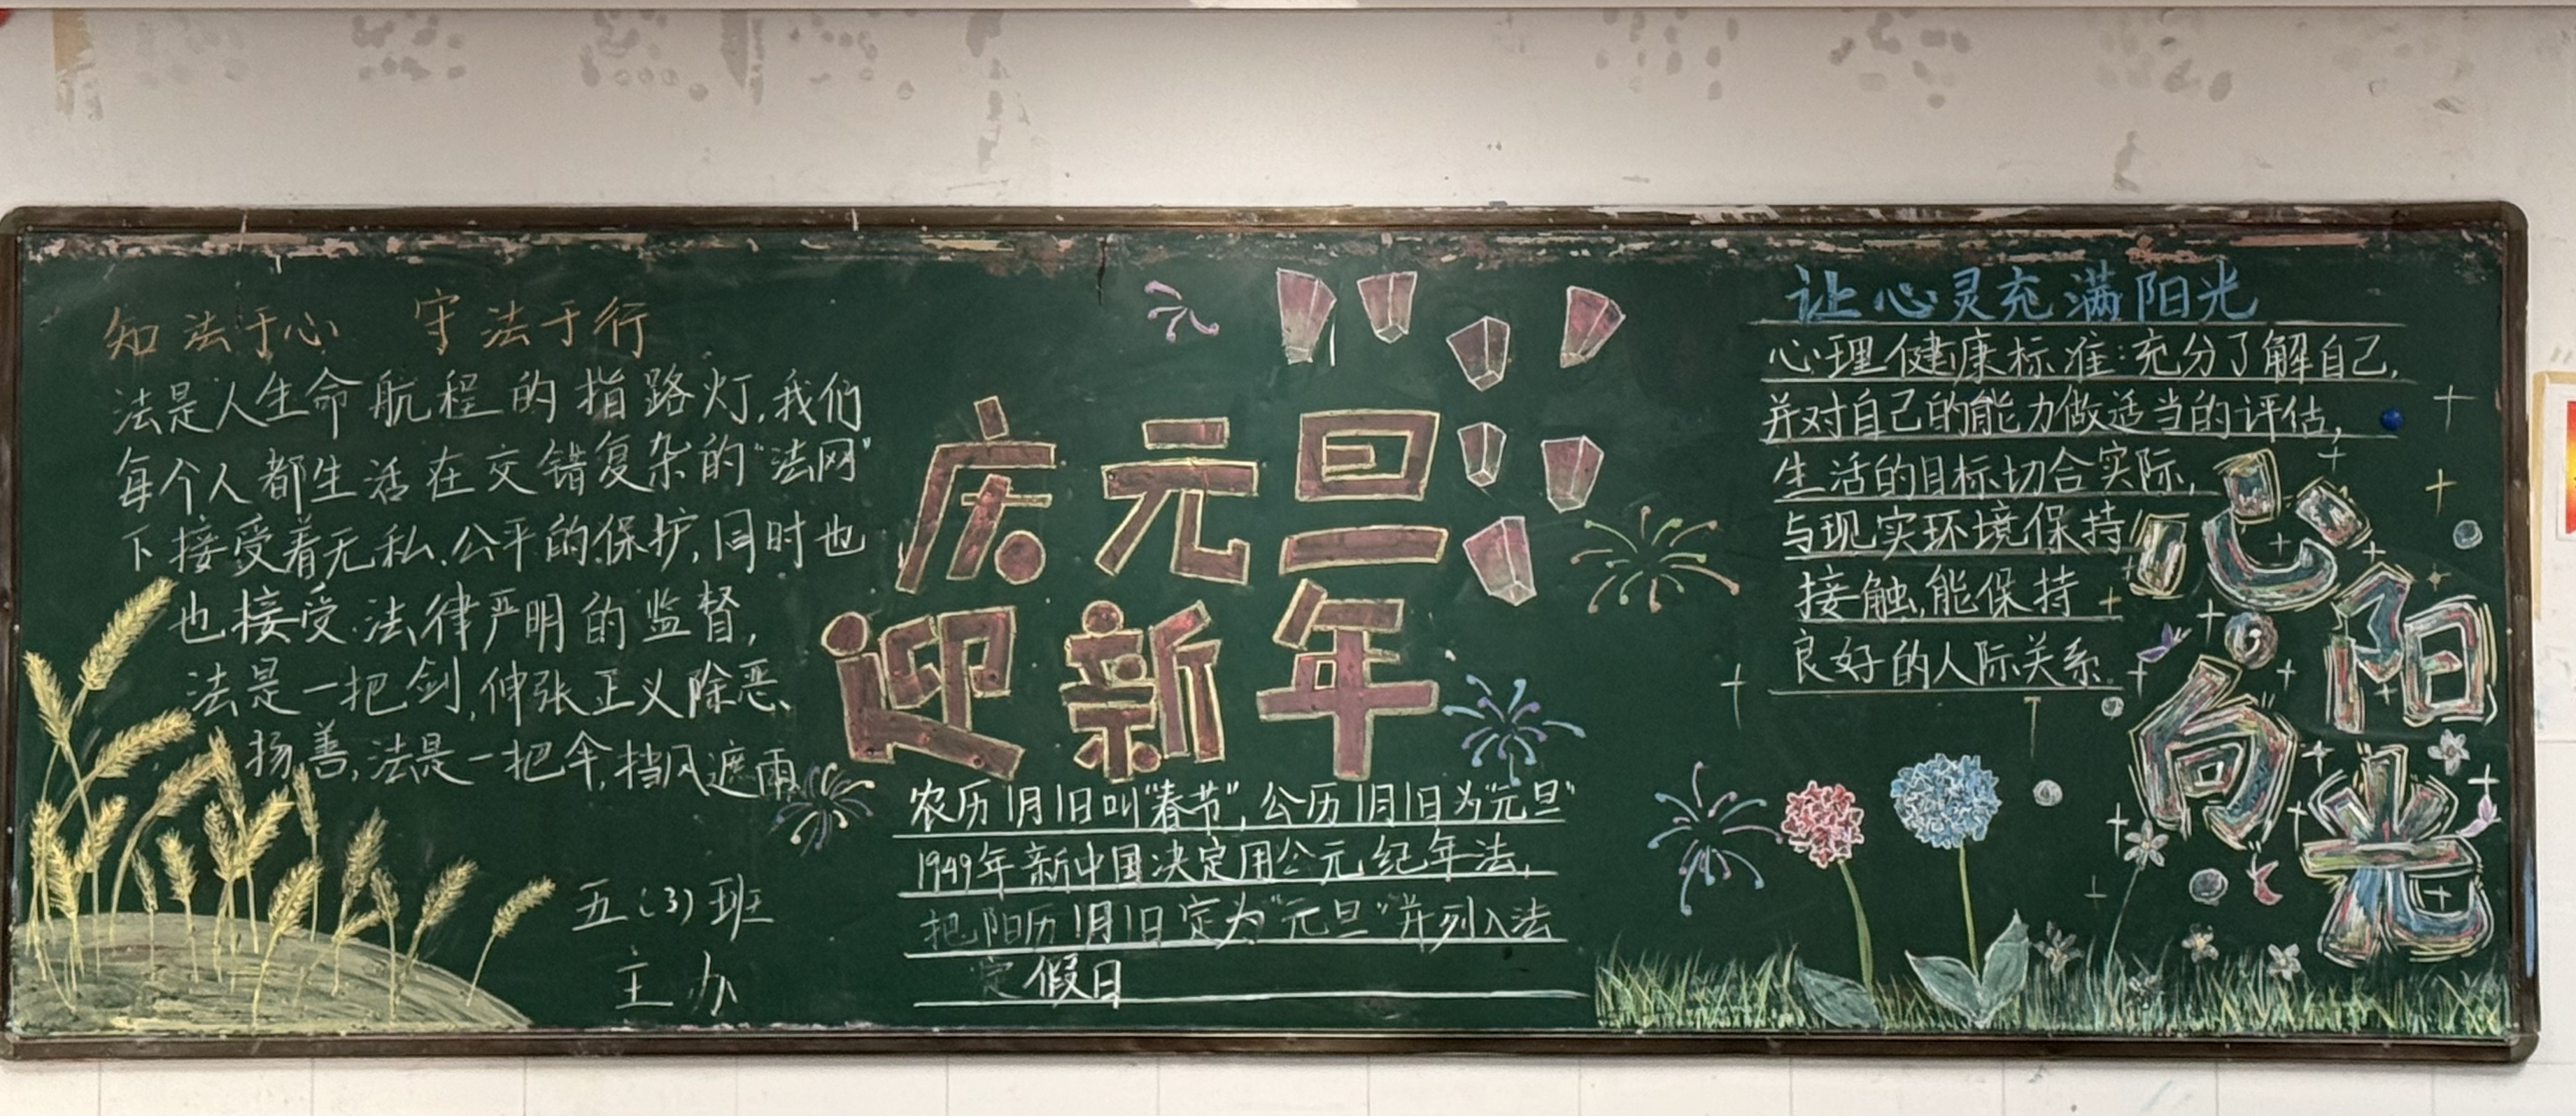 知法于心 守法于行
法是人生命航程的指路灯,我们
每个人都生活在交错复杂的“法网”
下接受着无私、公平的保护,同时也
也接受法律严明的监督,
法是一把剑,伸张正义除恶、
扬善,法是一把伞,挡风遮雨
五(3)班
主办
庆元旦
迎新年
农历1月1日叫“春节”,公历1月1日为“元旦”
1949年新中国决定用公元纪年法,
把阳历1月1日定为“元旦”并列入法
定假日
让心灵充满阳光
心理健康标准:充分了解自己,
并对自己的能力做适当的评估,
生活的目标切合实际,
与现实环境保持
接触,能保持
良好的人际关系。
心
向阳
光